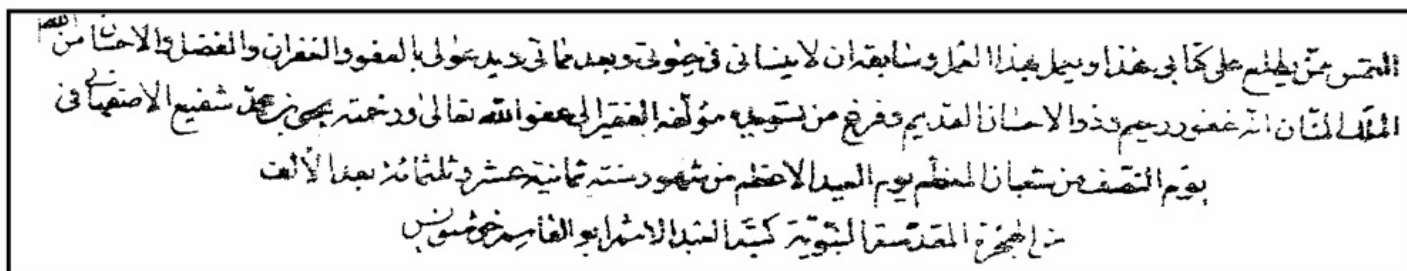 التمس ممّن يطلع على كتابي هذا ويعمل بهذا العمل وسابقه ان لا ينساني في حيوتي وبعد مماتي ويدعو لي بالعفو والغفران والفضل والاحسان من الله
الملك المنّان انّه غفور رحيم وذو الاحسان القديم وفرغ من تسويده مؤلّفه الفقير الى عفو الله تعالى ورحمته يحيى بن محمّد شفيع الاصفهاني في
يوم النّصف من شعبان المعظّم يوم العيد الاعظم من شهور سنة ثمانية عشر وثلثمائة بعد الألف
من الهجرة المقدّسة النّبويّة كتبه العبد الاثم ابو القاسم خوشنويس